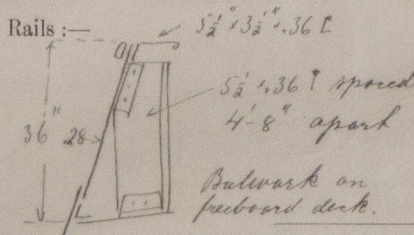 Rails :—
5½" × 3½" × .36 [
5½ × .36 I spaced
4'-8" apart
36"
.28
Bulwark on
freeboard deck.